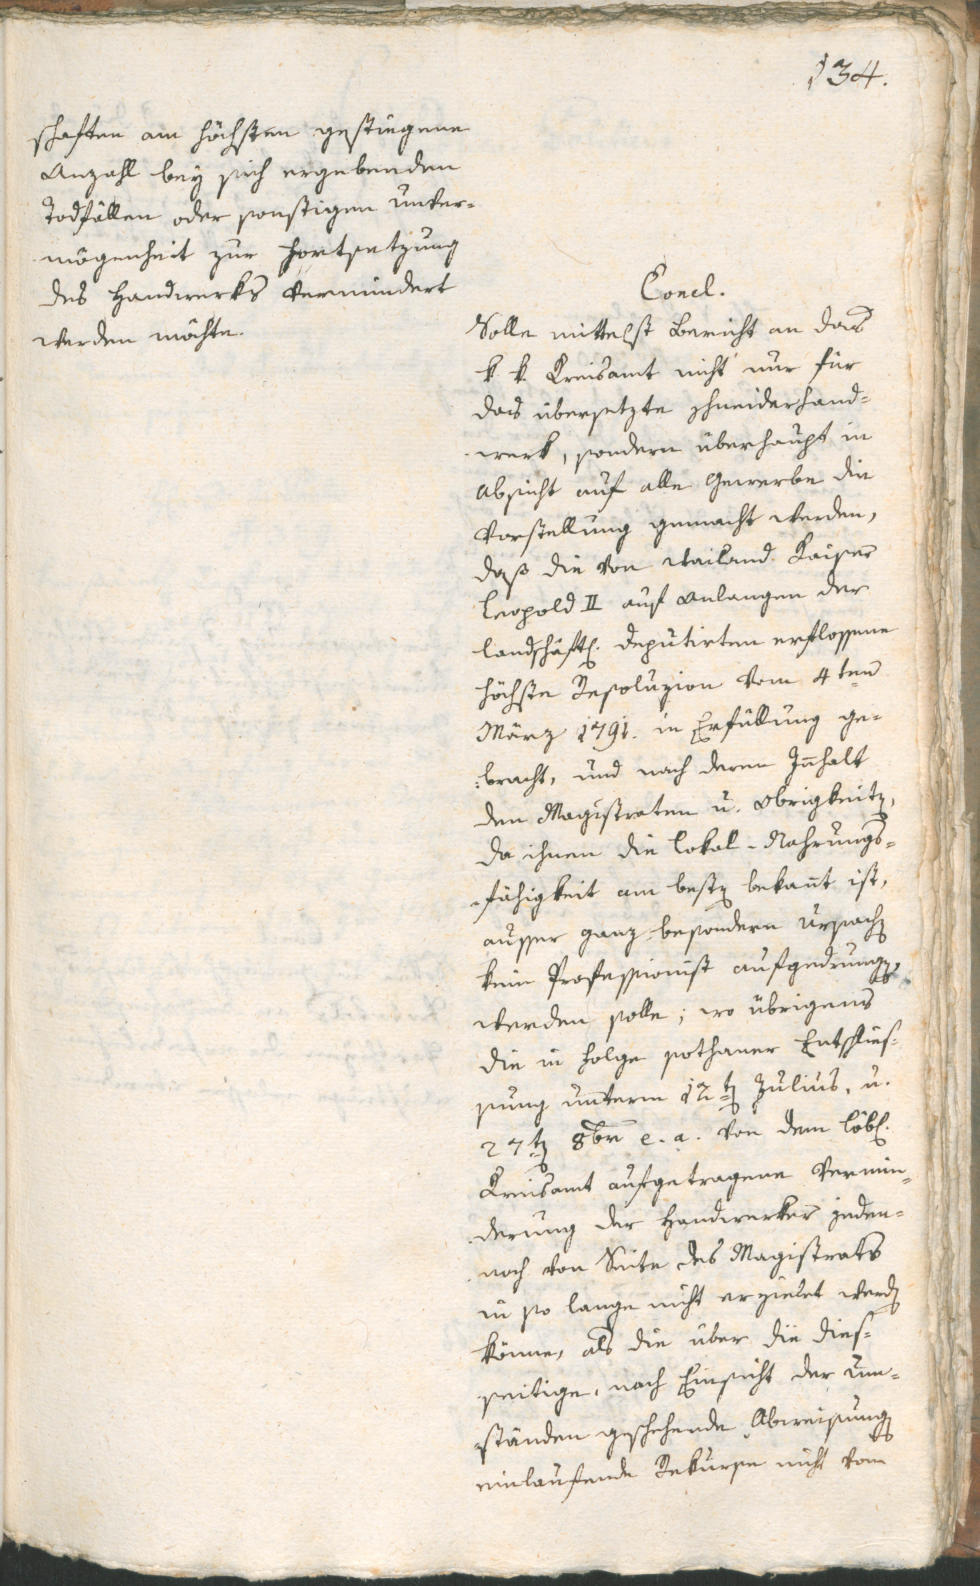 134.
schaften am höchsten gestiegene
Anzahl bey sich ergebenden
Todfällen oder sonstigen Unver-
mögenheit zur Fortsetzung
des Handwerks vermindert
werden möchte.
Concl.
Solle mittelst Bericht an das
k k Kreisamt nicht nur für
das übersetzte Schneiderhand-
werk, sondern überhaupt in
Absicht auf alle Gewerbe die
Vorstellung gemacht werden,
daß die von weiland Kaiser
Leopold II auf Anlangen der
landschäftl. Deputirten erflossene
höchste Resoluzion vom 4ten
März 1791. in Erfüllung ge-
bracht, und nach deren Innhalt
den Magistraten u. Obrigkeiten,
da ihnen die Lokal-Nahrungs-
fähigkeit am besten bekannt ist,
ausser ganz besondern Ursachen
kein Professionist aufgedrungen
werden solle; wo übrigens
die in Folge sothaner Entschlies-
sung unterm 12ten Julius, u.
27ten 8br e. a. von dem löbl.
Kreisamt aufgetragene Vermin-
derung der Handwerker jeden-
noch von Seite des Magistrats
in so lange nicht erzielet werden
könne, als die über die dies-
seitige, nach Einsicht der Um-
ständen geschehende Abweisungen
einlaufende Rekurse nicht vom